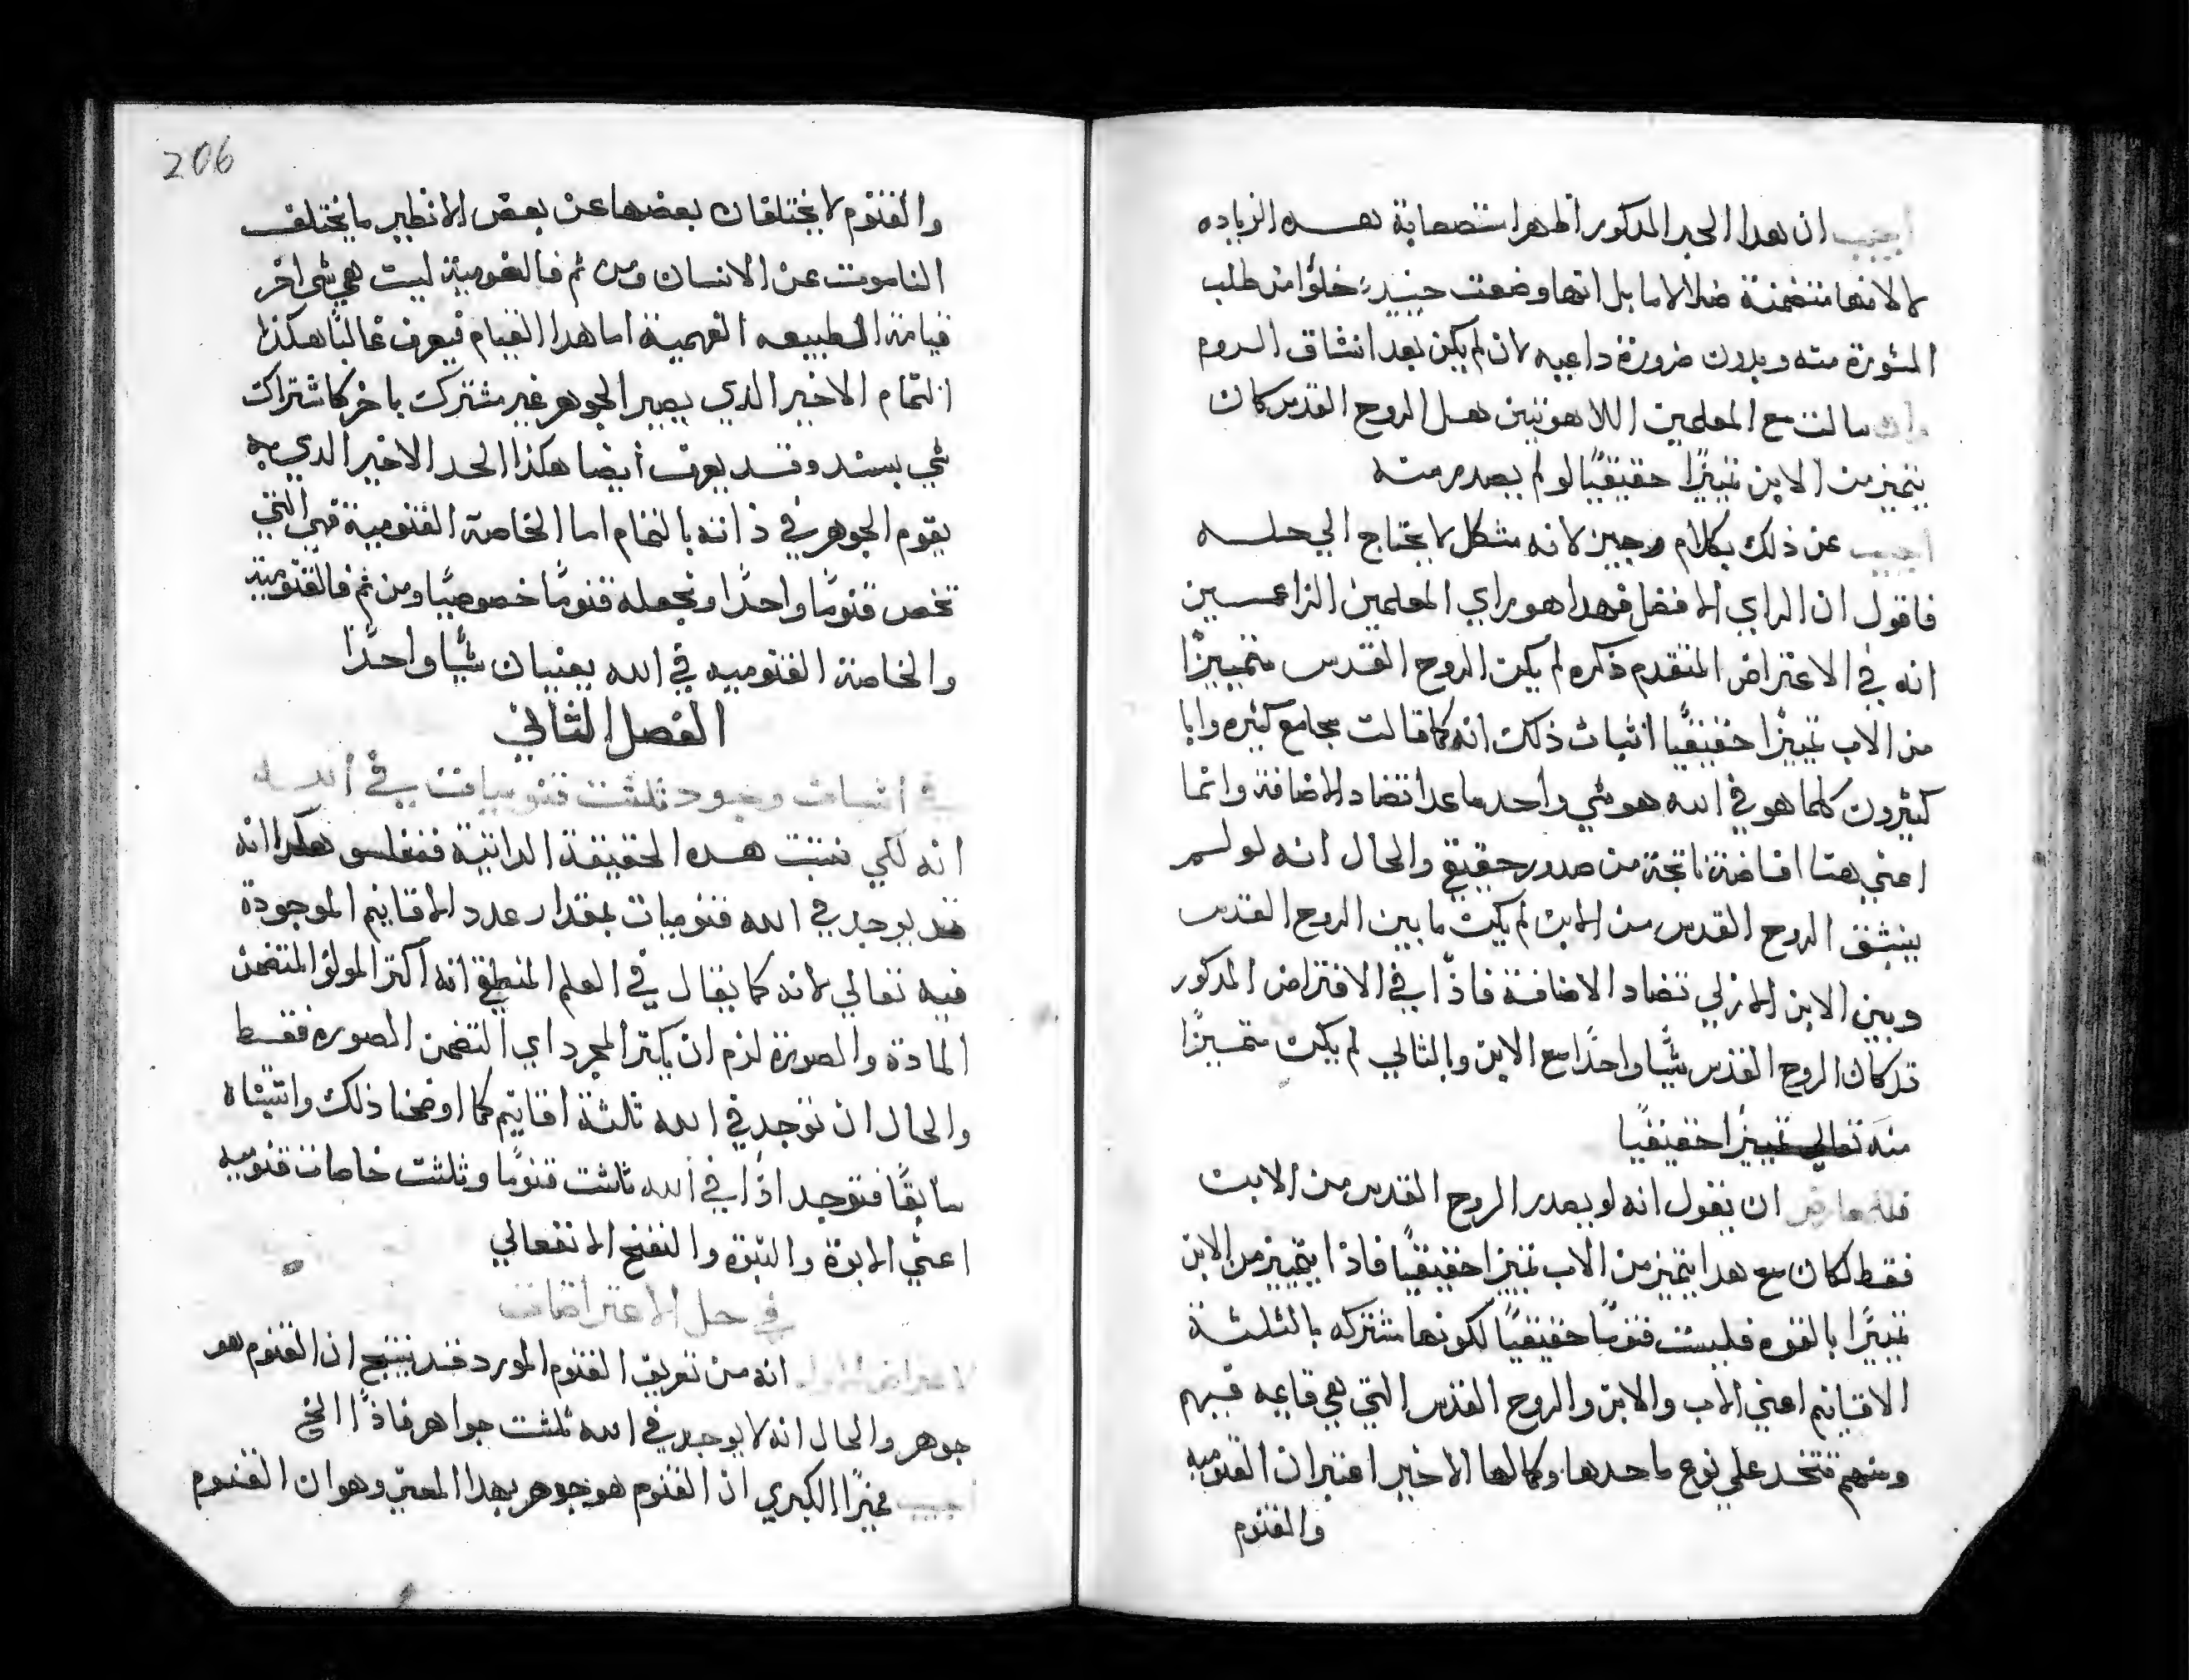 اجيب ان هدا الحبر المدكور اظهر استصعابة بهـــده الزياده
لا لانها متضمنة ضلالا ما بل انها وضعت حينيدٍ خلوًا من طلب
المشورة منه وبدون ضرورة داعيه لان لم يكن بعد انشاق الروم
وان سالت مع المعلمين اللاهوتيين هـل الروح القدس كان
يتميز من الابن تمييزًا حقيقيًا لو لم يصدر منه
اجيب عن ذلك بكلام وجيز لانه مشكل لا يحتاج الي حلـــه
فاقول ان الراي الافضل فهدا هو راي المعلمين الزاعمـــين
انه في الاعتراض المتقدم ذكره لم يكن الروح القدس متمييزًا
من الاب تمييزًا حقيقيًا اثبات ذلك انه كما قالت مجامع كثيره وابا
كثيرون كلما هو في الله هو شي واحد ما عدا تضاد الاضافة وانما
اعني هنا اضافة ناتجة من صدور حقيقي والحال انه لو لـــم
ينبثق الروح القدس من الابن لم يكن ما بين الروح القدس
وبين الابن الازلي تضاد الاضافة فاذًا في الافتراض المدكور
قد كان الروح القدس شيًا واحدًا مع الابن وبالتالي لم يكن متمـيزًا
منه تعالي تمييزًا حقيقيًا
فلمعارض ان يقول انه لو يصدر الروح القدس من الابن
فقط لكان مع هدا يتميز من الاب تمييزًا حقيقيًا فاذًا يتمييز من الابن
تمييزًا بالقوه فليست قنومًا حقيقيًا لكونها مشتركه بالثلثة
الاقانيم اعني الاب والابن والروح القدس التي هي قايمه فيهم
ومنهم تتخد علي نوع ما حدها وكمالها الاخير اعتبر ان القنوميه
والقنوم
206
والقنوم لا يختلفان بعضها عن بعض الا نظير ما يختلف
الناسوت عن الانسان ومن ثم فالقنومية ليست هي شي اخر
قيامة الطبيعه الفهمية اما هدا القيام فيعرف غالبًا هكذا
التمام الاخير الدي يصير الجوهر غير مشترك باخر كاشتراك
شي بسند وقـد يعرف أيضا هكذا الحد الاخير الدي به
يقوم الجوهر في ذاته بالتمام اما الخاصة القنومية فهي التي
تخص قنومًا واحدًا وتجعله قنومًا خصوصيًا ومن ثم فالقنومية
والخاصة القنوميه في الله يعنيان شيًا واحدًا
الفصل الثاني
في اثبات وجود ثلثت قنوميات في اللــه
انه لكي نثبت هـــده الحقيقة الداتية فنقلس هكدا انه
قد يوجد في الله قنوميات بمقدار عدد الاقانيم الموجودة
فيه تعالي لانه كما يقال في العلم المنطقي انه اكثر المولف المتضمن
المادة والصورة لزم ان يكثر المجرد اي المتضمن الصوره فقـط
والحال ان توجد في الله ثلثة اقانيم كما اوضحنا ذلك واتبتناه
سابقًا فتوجد اذًا في الله ثلثت قنومًا وثلثت خاصات قنوميه
اعني الابوة والبنوة والنفخ الانفعالي
في حل الاعتراضات
الاعتراض الاول انه من تعريف القنوم المورد قد ينتج ان القنوم هو
جوهر والحال انه لا يوجد في الله ثلثت جواهر فاذًا الخ
اجيب مميزًا الكبري ان القنوم هو جوهر بهدا المعني وهو ان القنوم